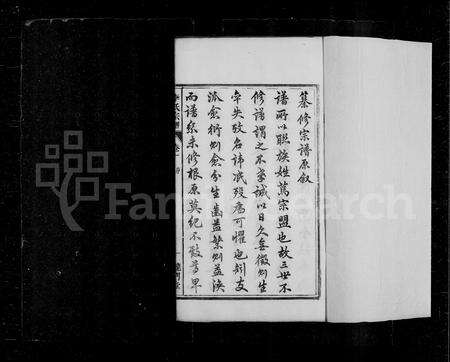 纂修宗譜原叙
譜所以聯族姓篤宗盟也故三世不
修譜謂之不孝誠以日久無徵則生
卒失改名諱泯殁為可懼也矧支
派愈衍則愈分生齒益繁則益渙
而譜系未修根原莫紀不敢尊卑
氏宗譜 卷一
FamilySearch